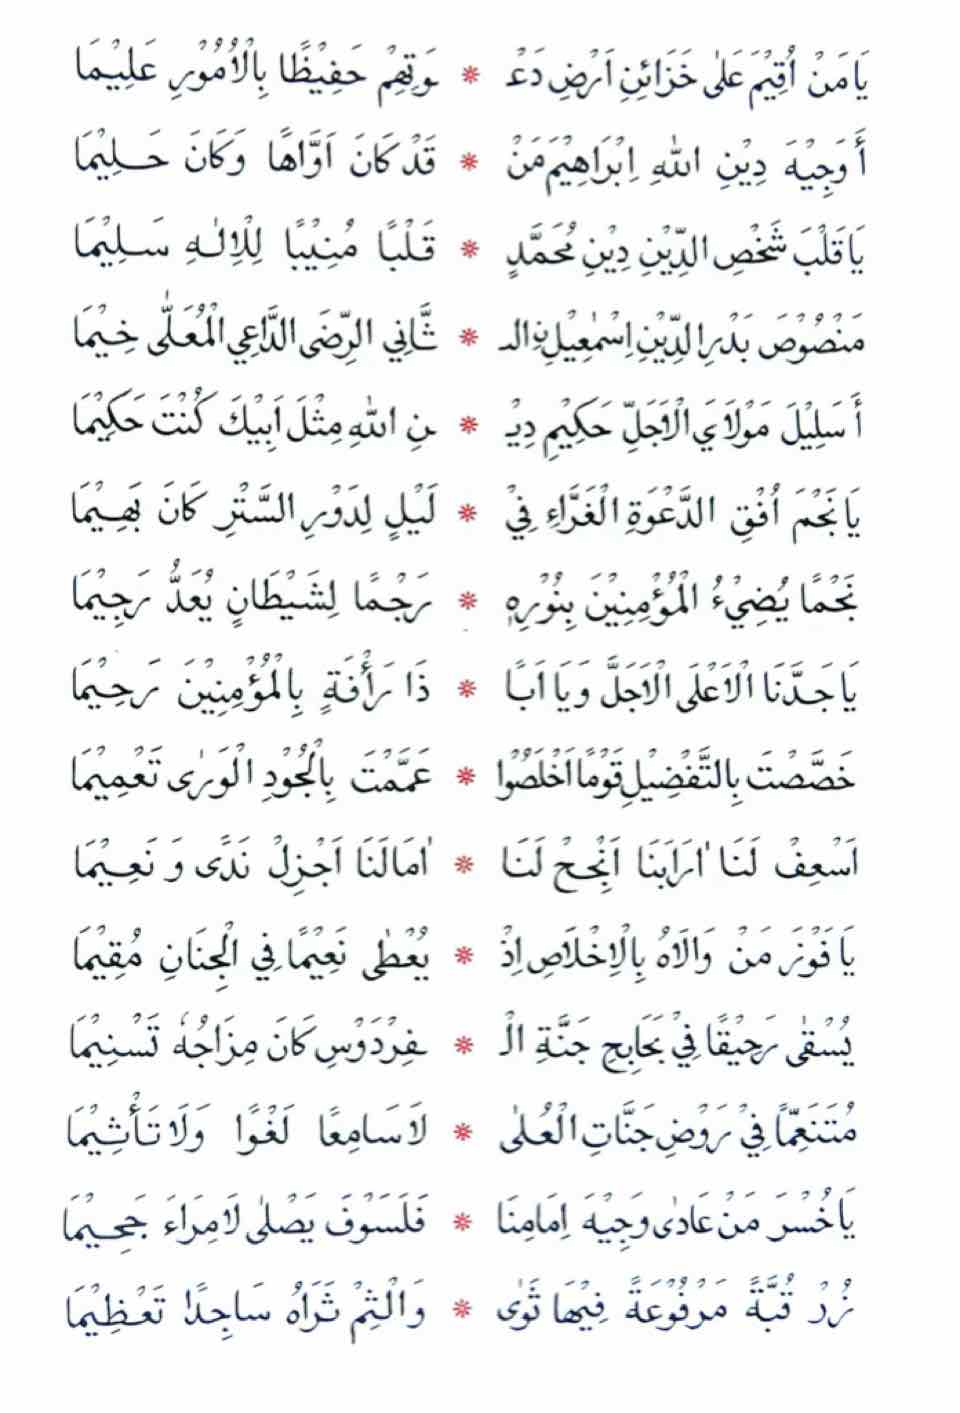 يَا مَنْ اُقِيْمَ عَلٰى خَزَائِنِ اَرْضِ دَعْـ * ـوَتِهِمْ حَفِيْظًا بِالْاُمُوْرِ عَلِيْمَا
أَوَجِيْهَ دِيْنِ اللهِ اِبْرَاهِيْمَ مَنْ * قَدْ كَانَ اَوَّاهًا وَكَانَ حَلِيْمَا
يَا قَلْبَ شَخْصِ الدِّيْنِ دِيْنِ مُحَمَّدٍ * قَلْبًا مُنِيْبًا لِلْاِلٰهِ سَلِيْمَا
مَنْصُوْصَ بَدْرِ الدِّيْنِ اِسْمٰعِيْلِ نِ الـ * ـثَّانِي الرِّضَى الدَّاعِي الْمُعَلّٰى خِيْمَا
أَسَلِيْلَ مَوْلَايَ الْاَجَلِّ حَكِيْمِ دِيْـ * ـنِ اللهِ مِثْلَ اَبِيْكَ كُنْتَ حَكِيْمَا
يَا نَجْمَ اُفْقِ الدَّعْوَةِ الْغَرَّاءِ فِيْ * لَيْلٍ لِدَوْرِ السَّتْرِ كَانَ بَهِيْمَا
نَجْمًا يُضِيْءُ الْمُؤْمِنِيْنَ بِنُوْرِهٖ * رَجْمًا لِشَيْطَانٍ يُعَدُّ رَجِيْمَا
يَا جَدَّنَا الْاَعْلَى الْاَجَلَّ وَيَا اَبًا * ذَا رَأْفَةٍ بِالْمُؤْمِنِيْنَ رَحِيْمَا
خَصَّصْتَ بِالتَّفْضِيْلِ قَوْمًا اَخْلَصُوْا * عَمَّمْتَ بِالْجُوْدِ الْوَرٰى تَعْمِيْمَا
اَسْعِفْ لَنَا اٰرَابَنَا اَنْجِحْ لَنَا * اٰمَالَنَا اَجْزِلْ نَدًى وَ نَعِيْمَا
يَا فَوْزَ مَنْ وَالَاهُ بِالْاِخْلَاصِ اِذْ * يُعْطٰى نَعِيْمًا فِي الْجِنَانِ مُقِيْمَا
يُسْقٰى رَحِيْقًا فِيْ بَحَابِحِ جَنَّةِ الْـ * ـفِرْدَوْسِ كَانَ مِزَاجُهٗ تَسْنِيْمَا
مُتَنَعِّمًا فِيْ رَوْضِ جَنَّاتِ الْعُلٰى * لَا سَامِعًا لَغْوًا وَلَا تَأْثِيْمَا
يَا خُسْرَ مَنْ عَادٰى وَجِيْهَ اِمَامِنَا * فَلَسَوْفَ يَصْلٰى لَا مِرَاءَ جَحِيْمَا
زُرْ قُبَّةً مَرْفُوْعَةً فِيْهَا ثَوٰى * وَالْثِمْ ثَرَاهُ سَاجِدًا تَعْظِيْمَا